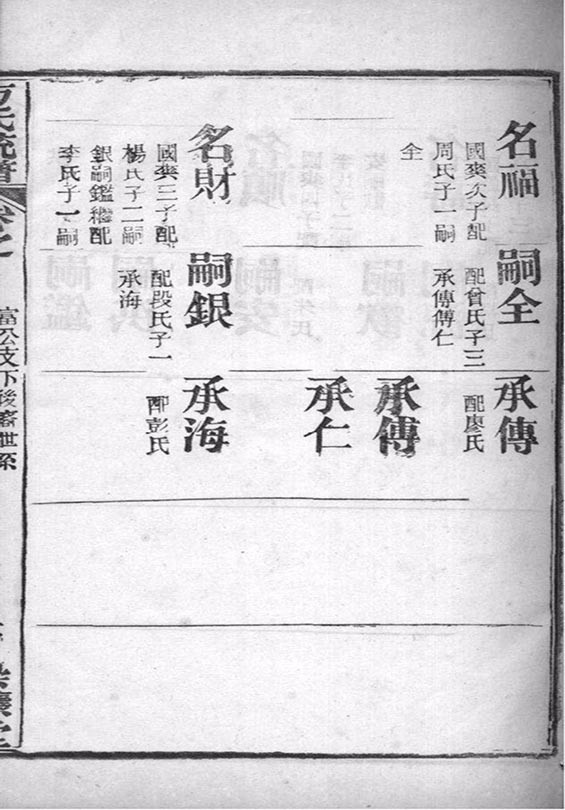 名福
國爽次子配
周氏子一嗣
全
名財
國爽三子配
楊氏子二嗣
銀嗣鑑繼配
李氏子一嗣
嗣全
配曾氏子三
承傳傳仁
嗣銀
配段氏子一
承海
承傳
配廖氏
承傳
承仁
承海
配彭氏
氏統譜
富公支下後裔世系